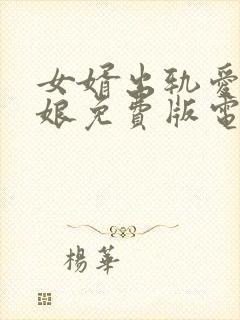 女婿出轨爱
娘免費版電
楊華